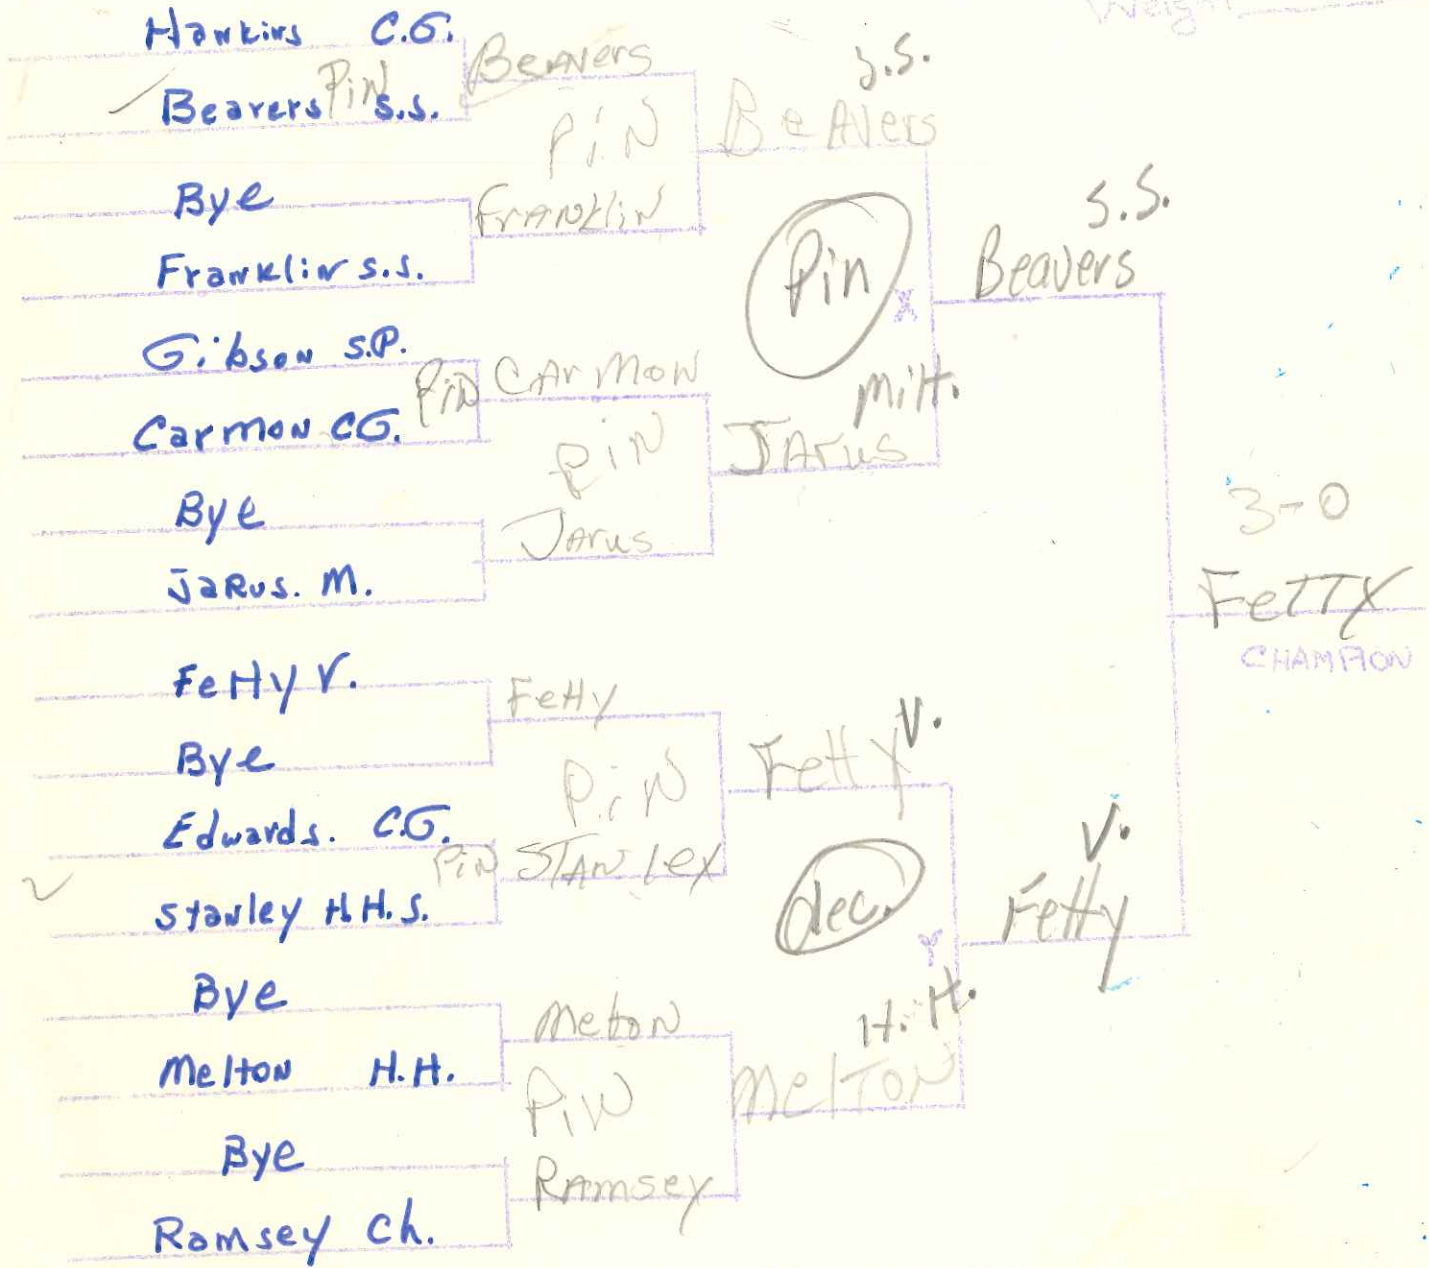 Weight
Hawkins C.G.
Beavers Pin S.S.
Bye
Franklin S.S.
Gibson S.P.
Pin
Carmon CG.
Bye
Jarus. M.
Fetty V.
Bye
Edwards. C.G.
Pin
Stanley H.H.S.
Bye
Melton H.H.
Bye
Ramsey Ch.
Beavers
Pin
Franklin
Carmon
Pin
Jarus
Fetty
Pin
Stanley
Melton
Pin
Ramsey
S.S.
Beavers
Pin
X
Milt.
Jarus
Fetty V.
dec.
Y
H.H.
Melton
S.S.
Beavers
V.
Fetty
3-0
Fetty
CHAMPION